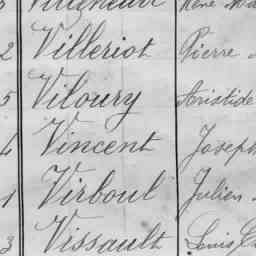 2 Villeriot Pierre
5 Viloury Aristide
4 Vincent Joseph
1 Virboul Julien
3 Vissault Louis